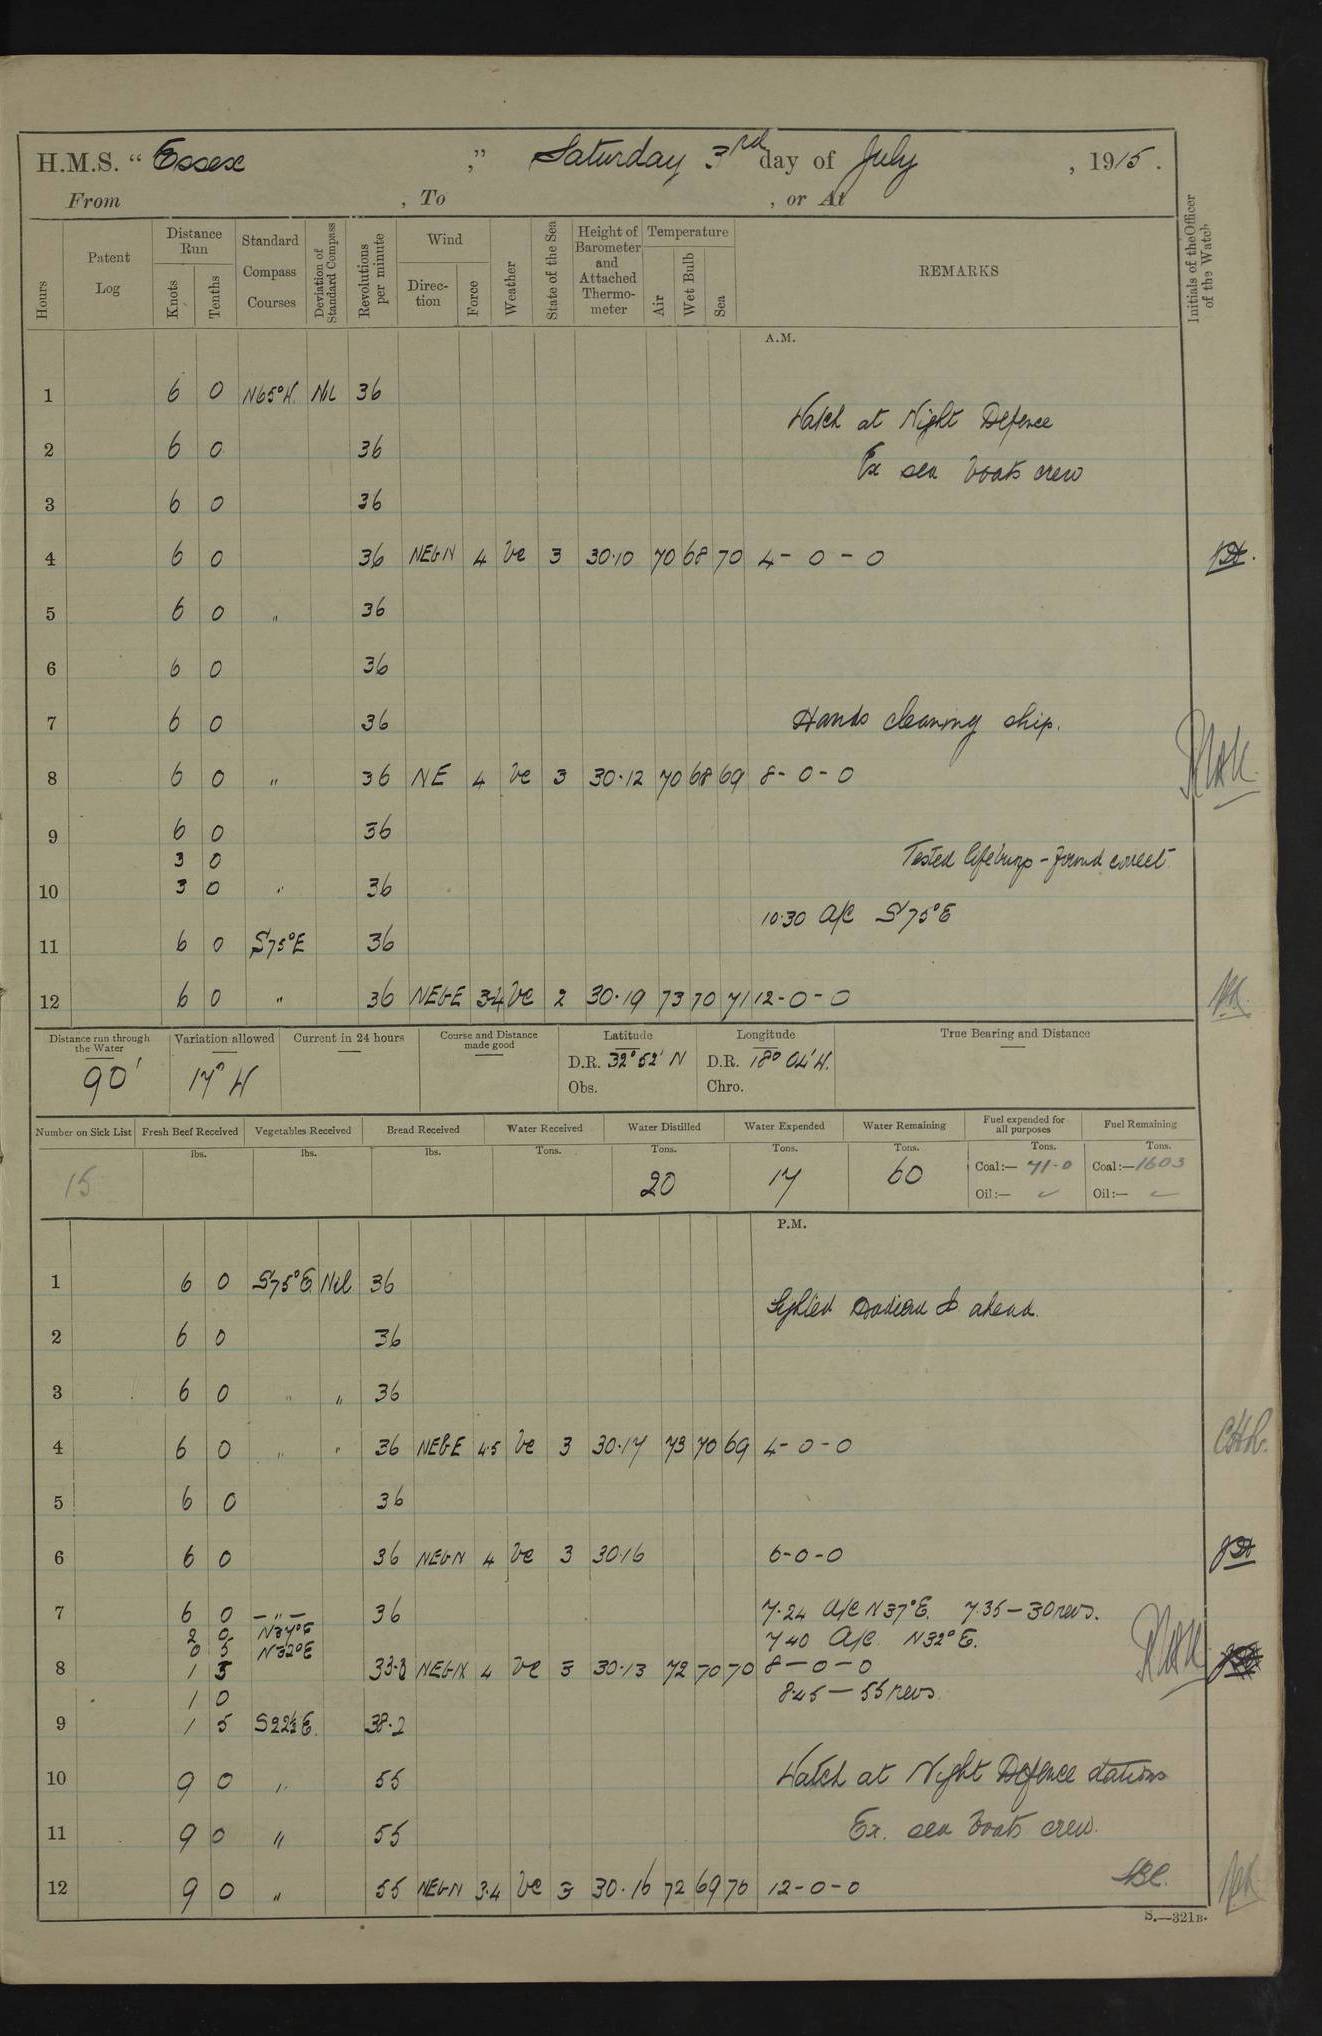 H.M.S. “ Essex ,” Saturday 3rd day of July , 1915 .
From , To , or At
Hours
Patent Log
Distance Run
Knots
Tenths
Standard Compass Courses
Deviation of Standard Compass
Revolutions per minute
Wind
Direction
Force
Weather
State of the Sea
Height of Barometer and Attached Thermometer
Temperature
Air
Wet Bulb
Sea
REMARKS
Initials of the Officer of the Watch
A.M.
1 6 0 N65°W. Nil 36
Watch at Night Defence
2 6 0 36
Ex sea boats crew
3 6 0 36
4 6 0 36 NEbN 4 bc 3 30.10 70 68 70 4-0-0
5 6 0 " 36
6 6 0 36
7 6 0 36 Hands cleaning ship.
8 6 0 " 36 NE 4 bc 3 30.12 70 68 69 8-0-0
9 6 0 36
3 0 Tested lifebuoys - found correct
10 3 0 " 36
10.30 A/C S75°E
11 6 0 S75°E 36
12 6 0 " 36 NEbE 3.4 bc 2 30.19 73 70 71 12-0-0
Distance run through the Water 90'
Variation allowed 17° W
Current in 24 hours
Course and Distance made good
Latitude
D.R. 32° 52' N
Obs.
Longitude
D.R. 18° 04' W.
Chro.
True Bearing and Distance
Number on Sick List 15
Fresh Beef Received lbs.
Vegetables Received lbs.
Bread Received lbs.
Water Received Tons.
Water Distilled Tons. 20
Water Expended Tons. 17
Water Remaining Tons. 60
Fuel expended for all purposes Tons.
Coal:— 71-0
Oil:—
Fuel Remaining Tons.
Coal:— 1603
Oil:—
P.M.
1 6 0 S75°E Nil 36
Sighted ahead.
2 6 0 36
3 6 0 " " 36
4 6 0 " " 36 NEbE 4.5 bc 3 30.17 73 70 69 4-0-0 CHR.
5 6 0 36
6 6 0 36 NEbN 4 bc 3 30.16 6-0-0
7 6 0 — " — 36 7.24 A/C N37°E. 7.35 — 30 revs.
2 0 N37°E 7.40 A/C N32°E.
0 5 N32°E
8 1 5 33.8 NEbN 4 bc 3 30.13 72 70 70 8-0-0
1 0 8.45 — 55 revs
9 1 5 S22½E. 38.2
10 9 0 " 55 Watch at Night Defence stations
11 9 0 " 55 Ex. sea boats crew.
12 9 0 " 55 NEbN 3.4 bc 3 30.16 72 69 70 12-0-0
S.—321B.